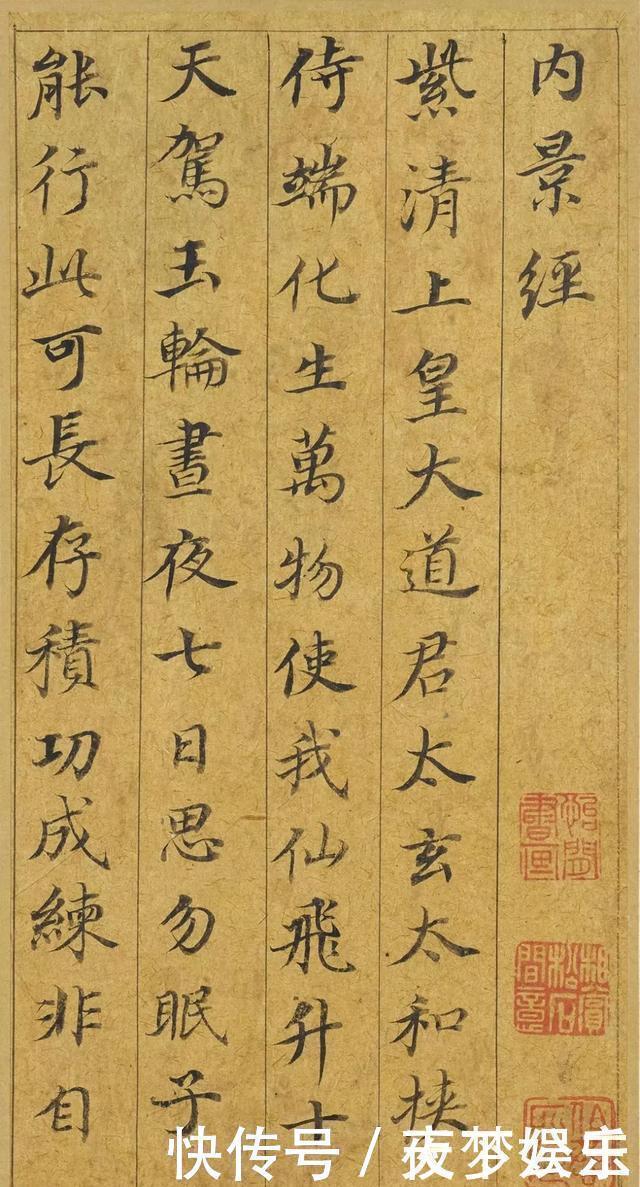 内景經
紫清上皇大道君太玄太和挾
侍端化生萬物使我仙飛升十
天駕玉輪晝夜七日思勿眠子
能行此可長存積功成練非自
相賞松石間意
快传号 / 夜梦娱乐